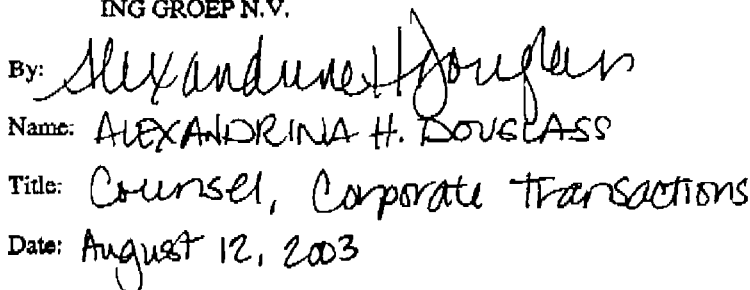 ING GROEP N.V.
By: Alexandrina H Douglass
Name: ALEXANDRINA H. DOUGLASS
Title: Counsel, Corporate Transactions
Date: August 12, 2003